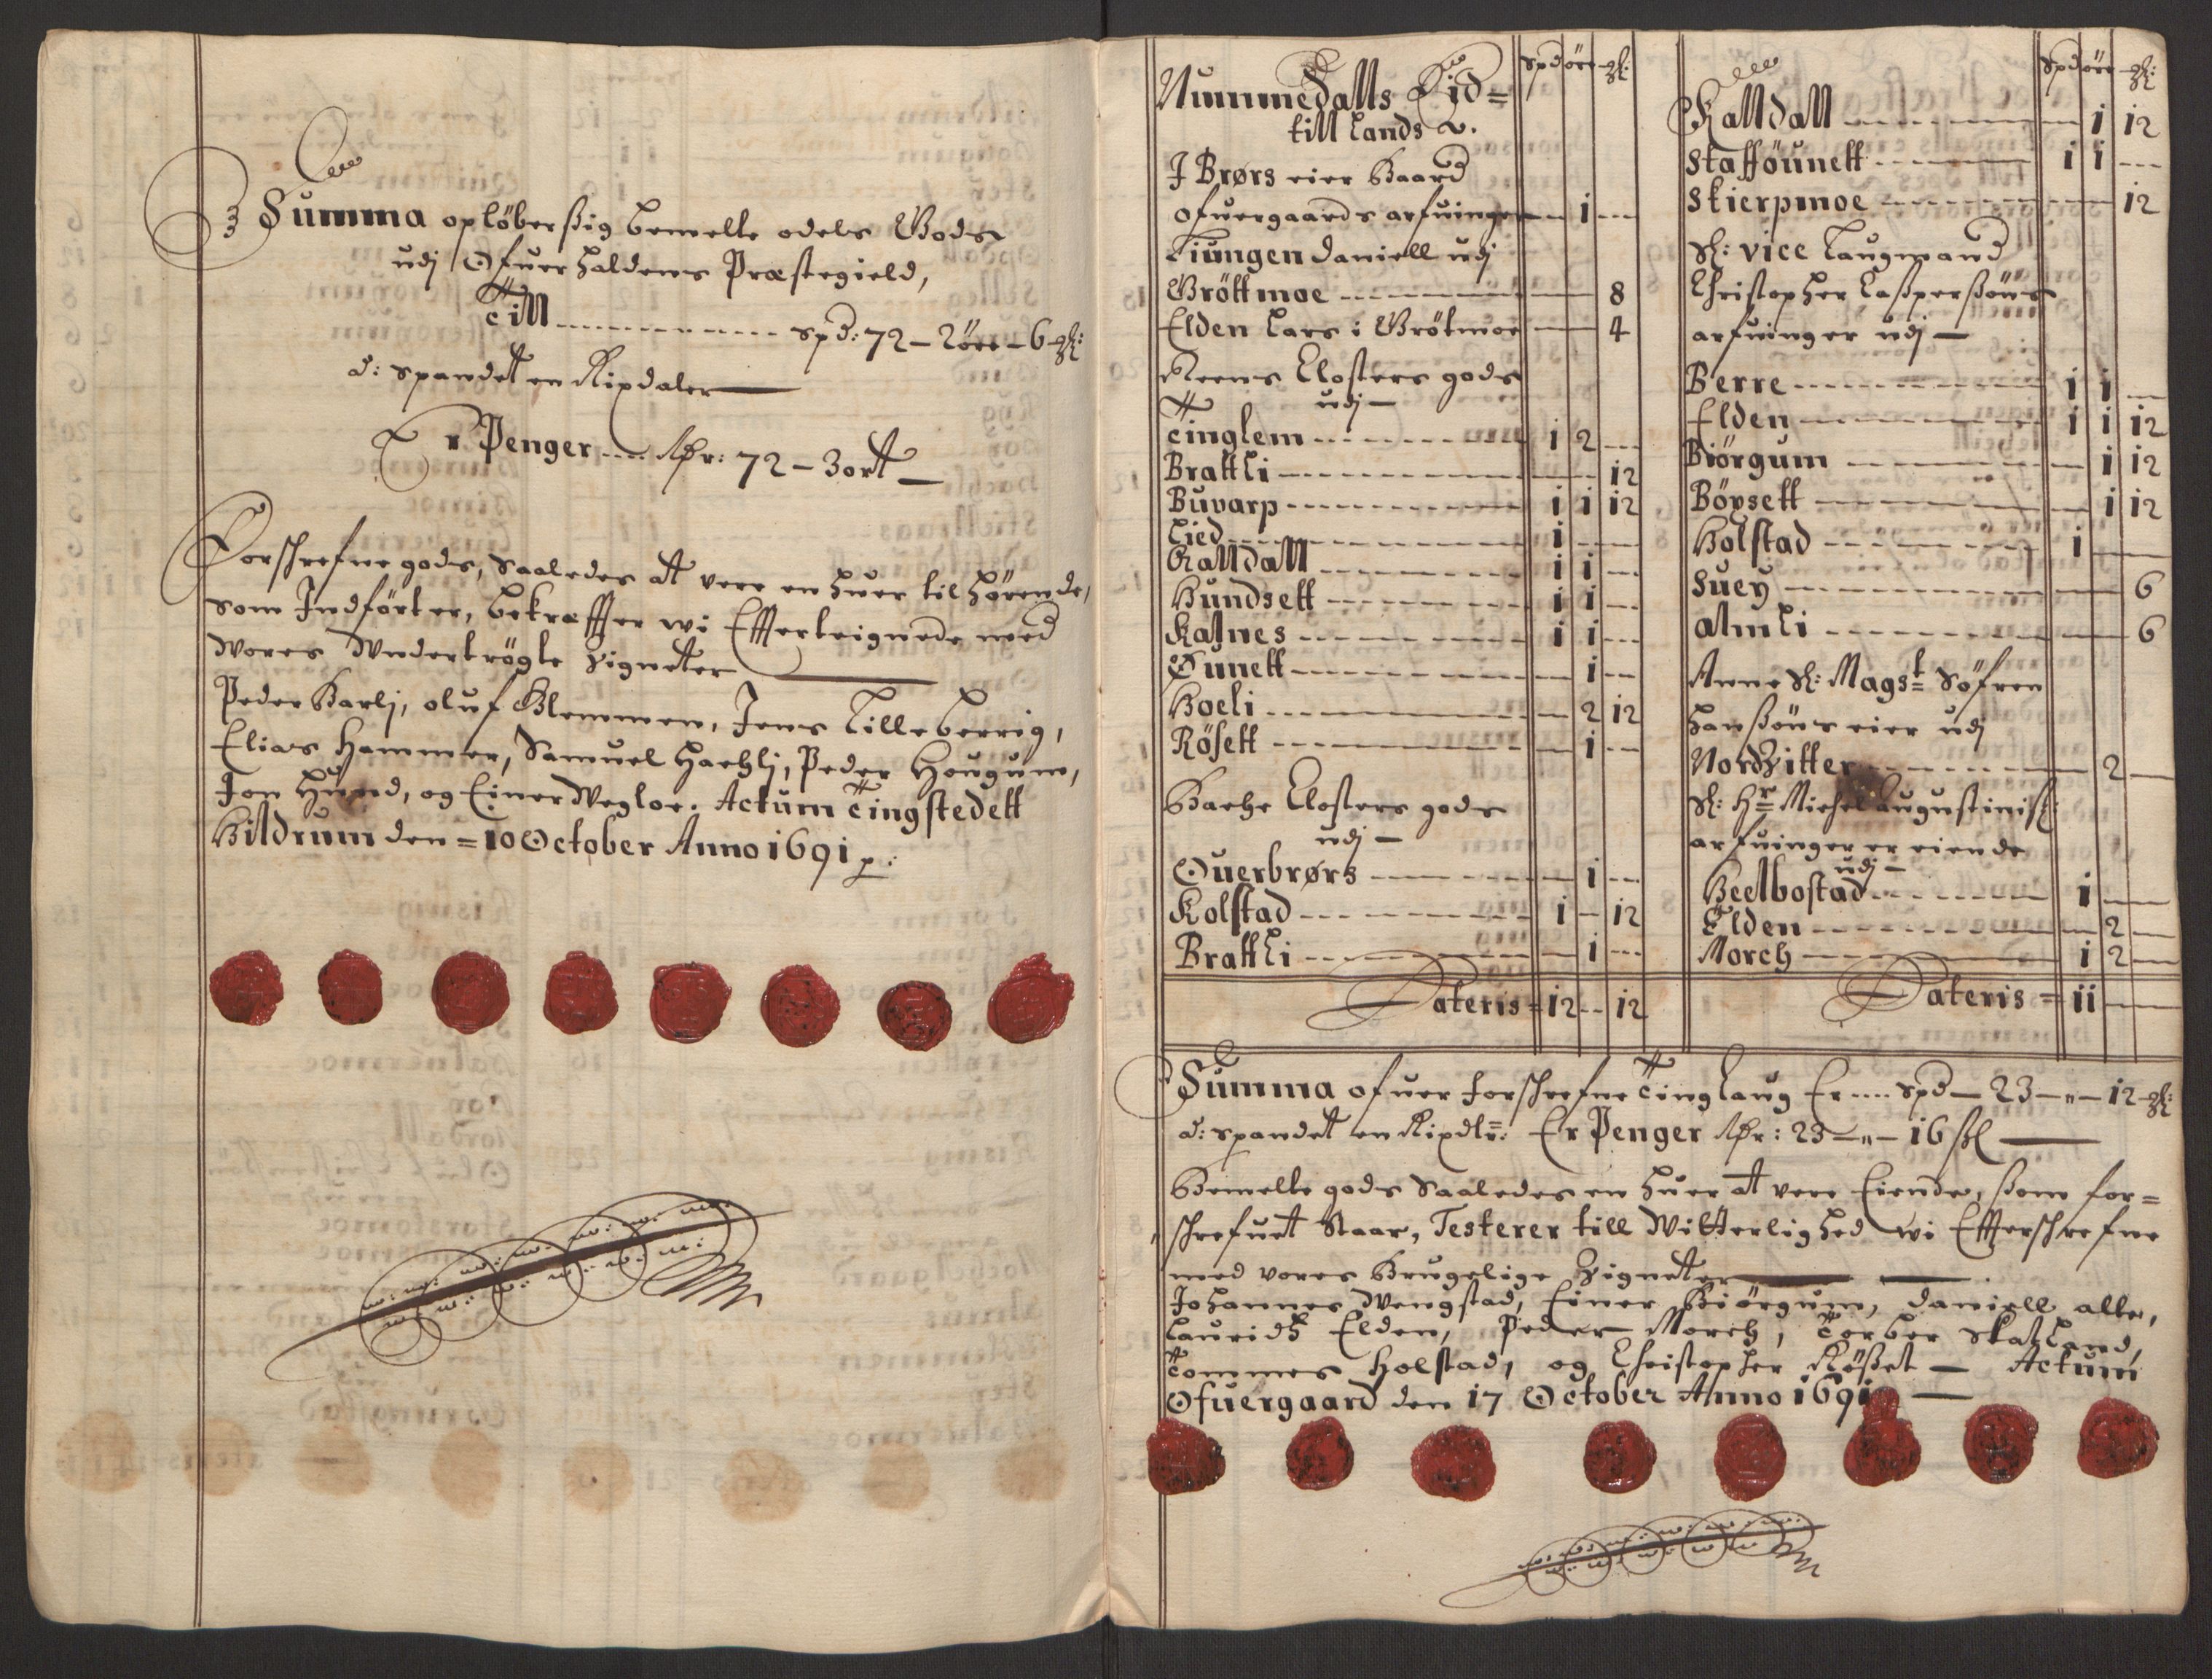 Summa opløberßig bemelte odels Gods
udj Ofuerhaldens Præstegield,
Till ---- spd: 72 – 2 öre – 6 mkl:
d: spandet en Rixdaler
Er Penger .... Rdr: 72 – 3 ort
Forschrefne gods, saaledes at vere en huer tilhörende,
som Indfört er, bekræffter wi Effterteignede med
Wores Undertrögte Zigneter
Peder Barlj, oluf Glemmen, Jens Lilleberrig,
Elias Hammer, Samuel Haehlj, Peder Hougum,
Jon Hund, og Einer Wegloe. Actum Tingstedett
Hildrum den = 10 October Anno 1691 p:
Nummedalls Eid=
till Lands v.
spd öre mkl:
I Brørs eier Baard
Ofuergaards arfuinger -- 1 ---
Liungen Daniell udj
Gröttmoe ---- 8
Elden Lars i Grötmoe -- 4
Reens Closters gods
udj –
Tinglem ---- 1 2 ---
Brattli ---- 12
Buvarp ---- 1 1 12
Lied ---- 1 ---
Kalldall ---- 1 1 ---
Hundsett ---- 1 1 ---
Kasnes ---- 1 1 ---
Øunett ---- 1 ---
Hoeli ---- 2 12
Rösett ---- 1 ---
Bache Closters gods
udj –
Ouerbrørs ---- 1 ---
Kolstad ---- 1 – 12
Brattli ---- 1 ---
Lateris = 12 -- 12
spd öre mkl:
Kalldall ---- 1 12
Stafföunett ---- 1 1 ---
Skierpmoe ---- 12
Sl: vice Laugmand
Christopher Caßperßöns
arfuinger udj –
Berre ---- 1 1 ---
Elden ---- 1 1 12
Biörgum ---- 1 12
Böysett ---- 1 12
Holstad ---- 1 ---
Suey ---- 6
Almli ---- 6
Anne Sl: Magst Söfren
Hanßöns eier udj
Nordzitter ---- 2 ---
Sl: Hr Michel Augustinis
arfuinger er eiende
udj –
Beelbostad ---- 1 ---
Elden ---- 2 ---
Morch ---- 1 2 ---
Lateris = 11 ---
Summa ofuer forschrefne Tinglaug Er .... spd – 23 – „ – 12 mkl:
d: spandet en Rixdlr: Er Penger Rdr: 23 – „ – 16 sl
Bemelte gods Saaledes en huer at vere Eiende, som for=
schrefuet Staar, Testerer till Witterlighed wi Effterschrefne
med vores Brugelige Zigneter
Johannes Wengstad, Einer Biörgum, Daniell alte,
Lauridtz Elden, Peder Morch, Torber Skatland,
Tommes Holstad, og Christopher Rößet – Actum
Ofuergaard den 17 October Anno 1691 –